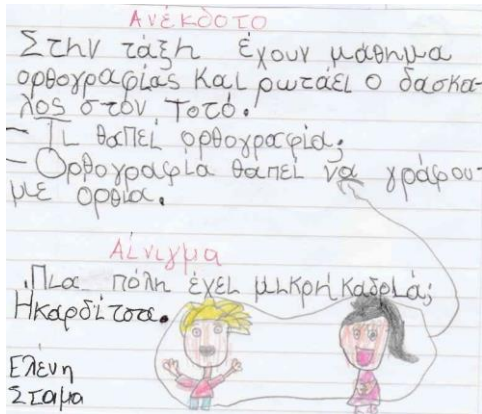 Ανέκδοτο
Στην τάξη έχουν μάθημα
ορθογραφίας και ρωτάει ο δασκα-
λος στον Τοτό.
– Τι θαπεί ορθογραφία;
– Ορθογραφία θαπεί να γράφου-
με ορθια.
Αίνιγμα
Πια πόλη έχει μικρή καδριά;
Ηκαρδίτσα.
Ελένη
Σταμα